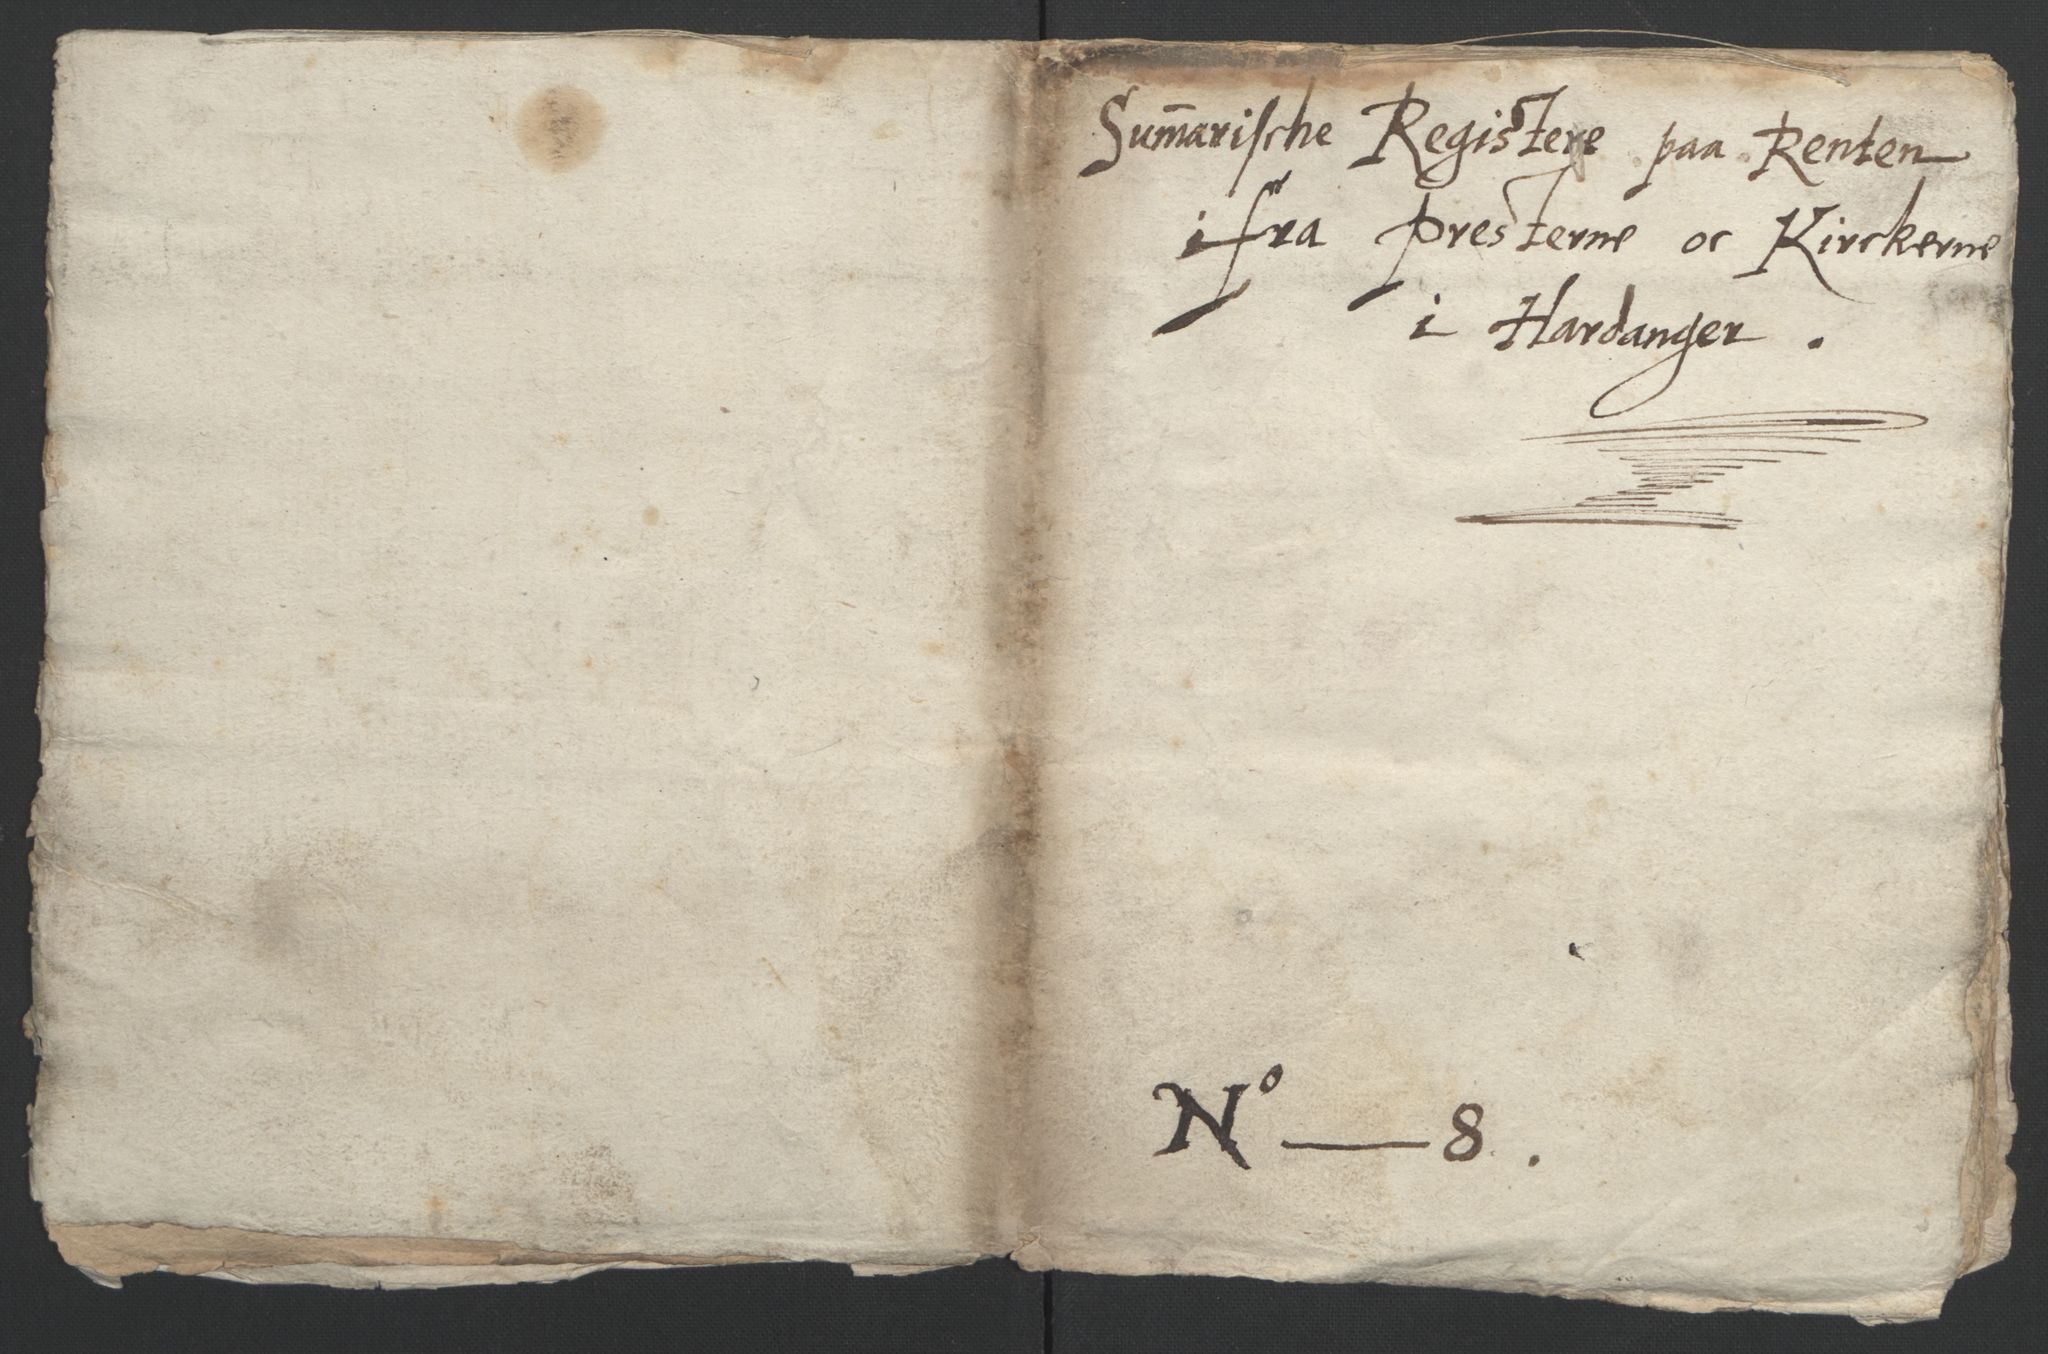 Sum̅arische Registere paa Renten
i fra Presterne oc Kirckerne
i Hardanger .
Nº — 8 .